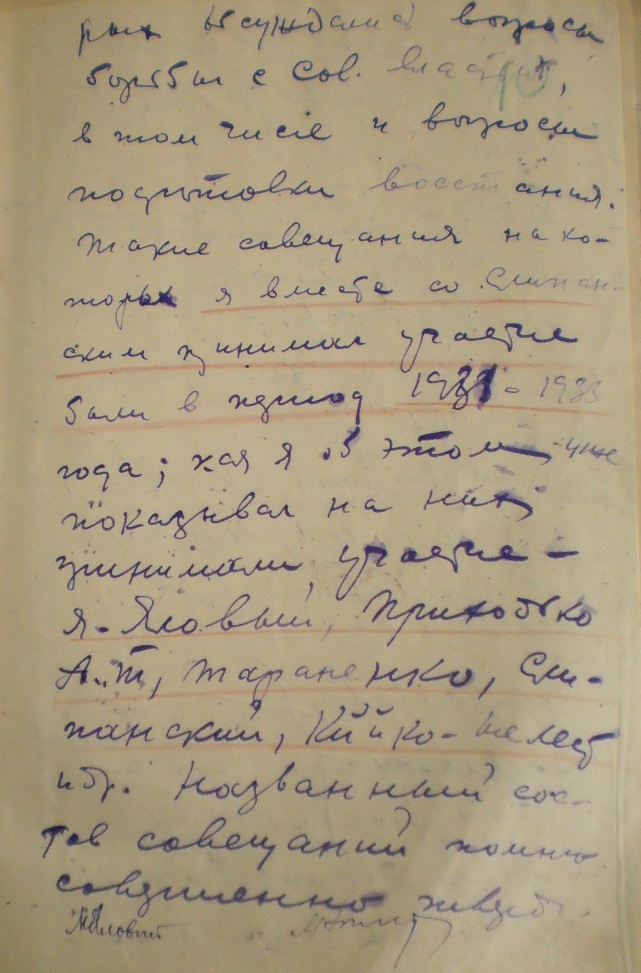 рых обсуждались вопросы
борьбы с Сов. властью,
в том числе и вопросы
подготовки восстания.
Такие совещания на ко-
торых я вместе со Слипан-
ским принимал участие
были в период 1931 - 1933
года; как я об этом уже
показывал на них
принимали участие -
я - Яловый, Приходько
А.Т., Тараненко, Сли-
панский, Кийко-Шелест
и др. Названный сос-
тав совещаний помню
совершенно твердо.
МЯловий